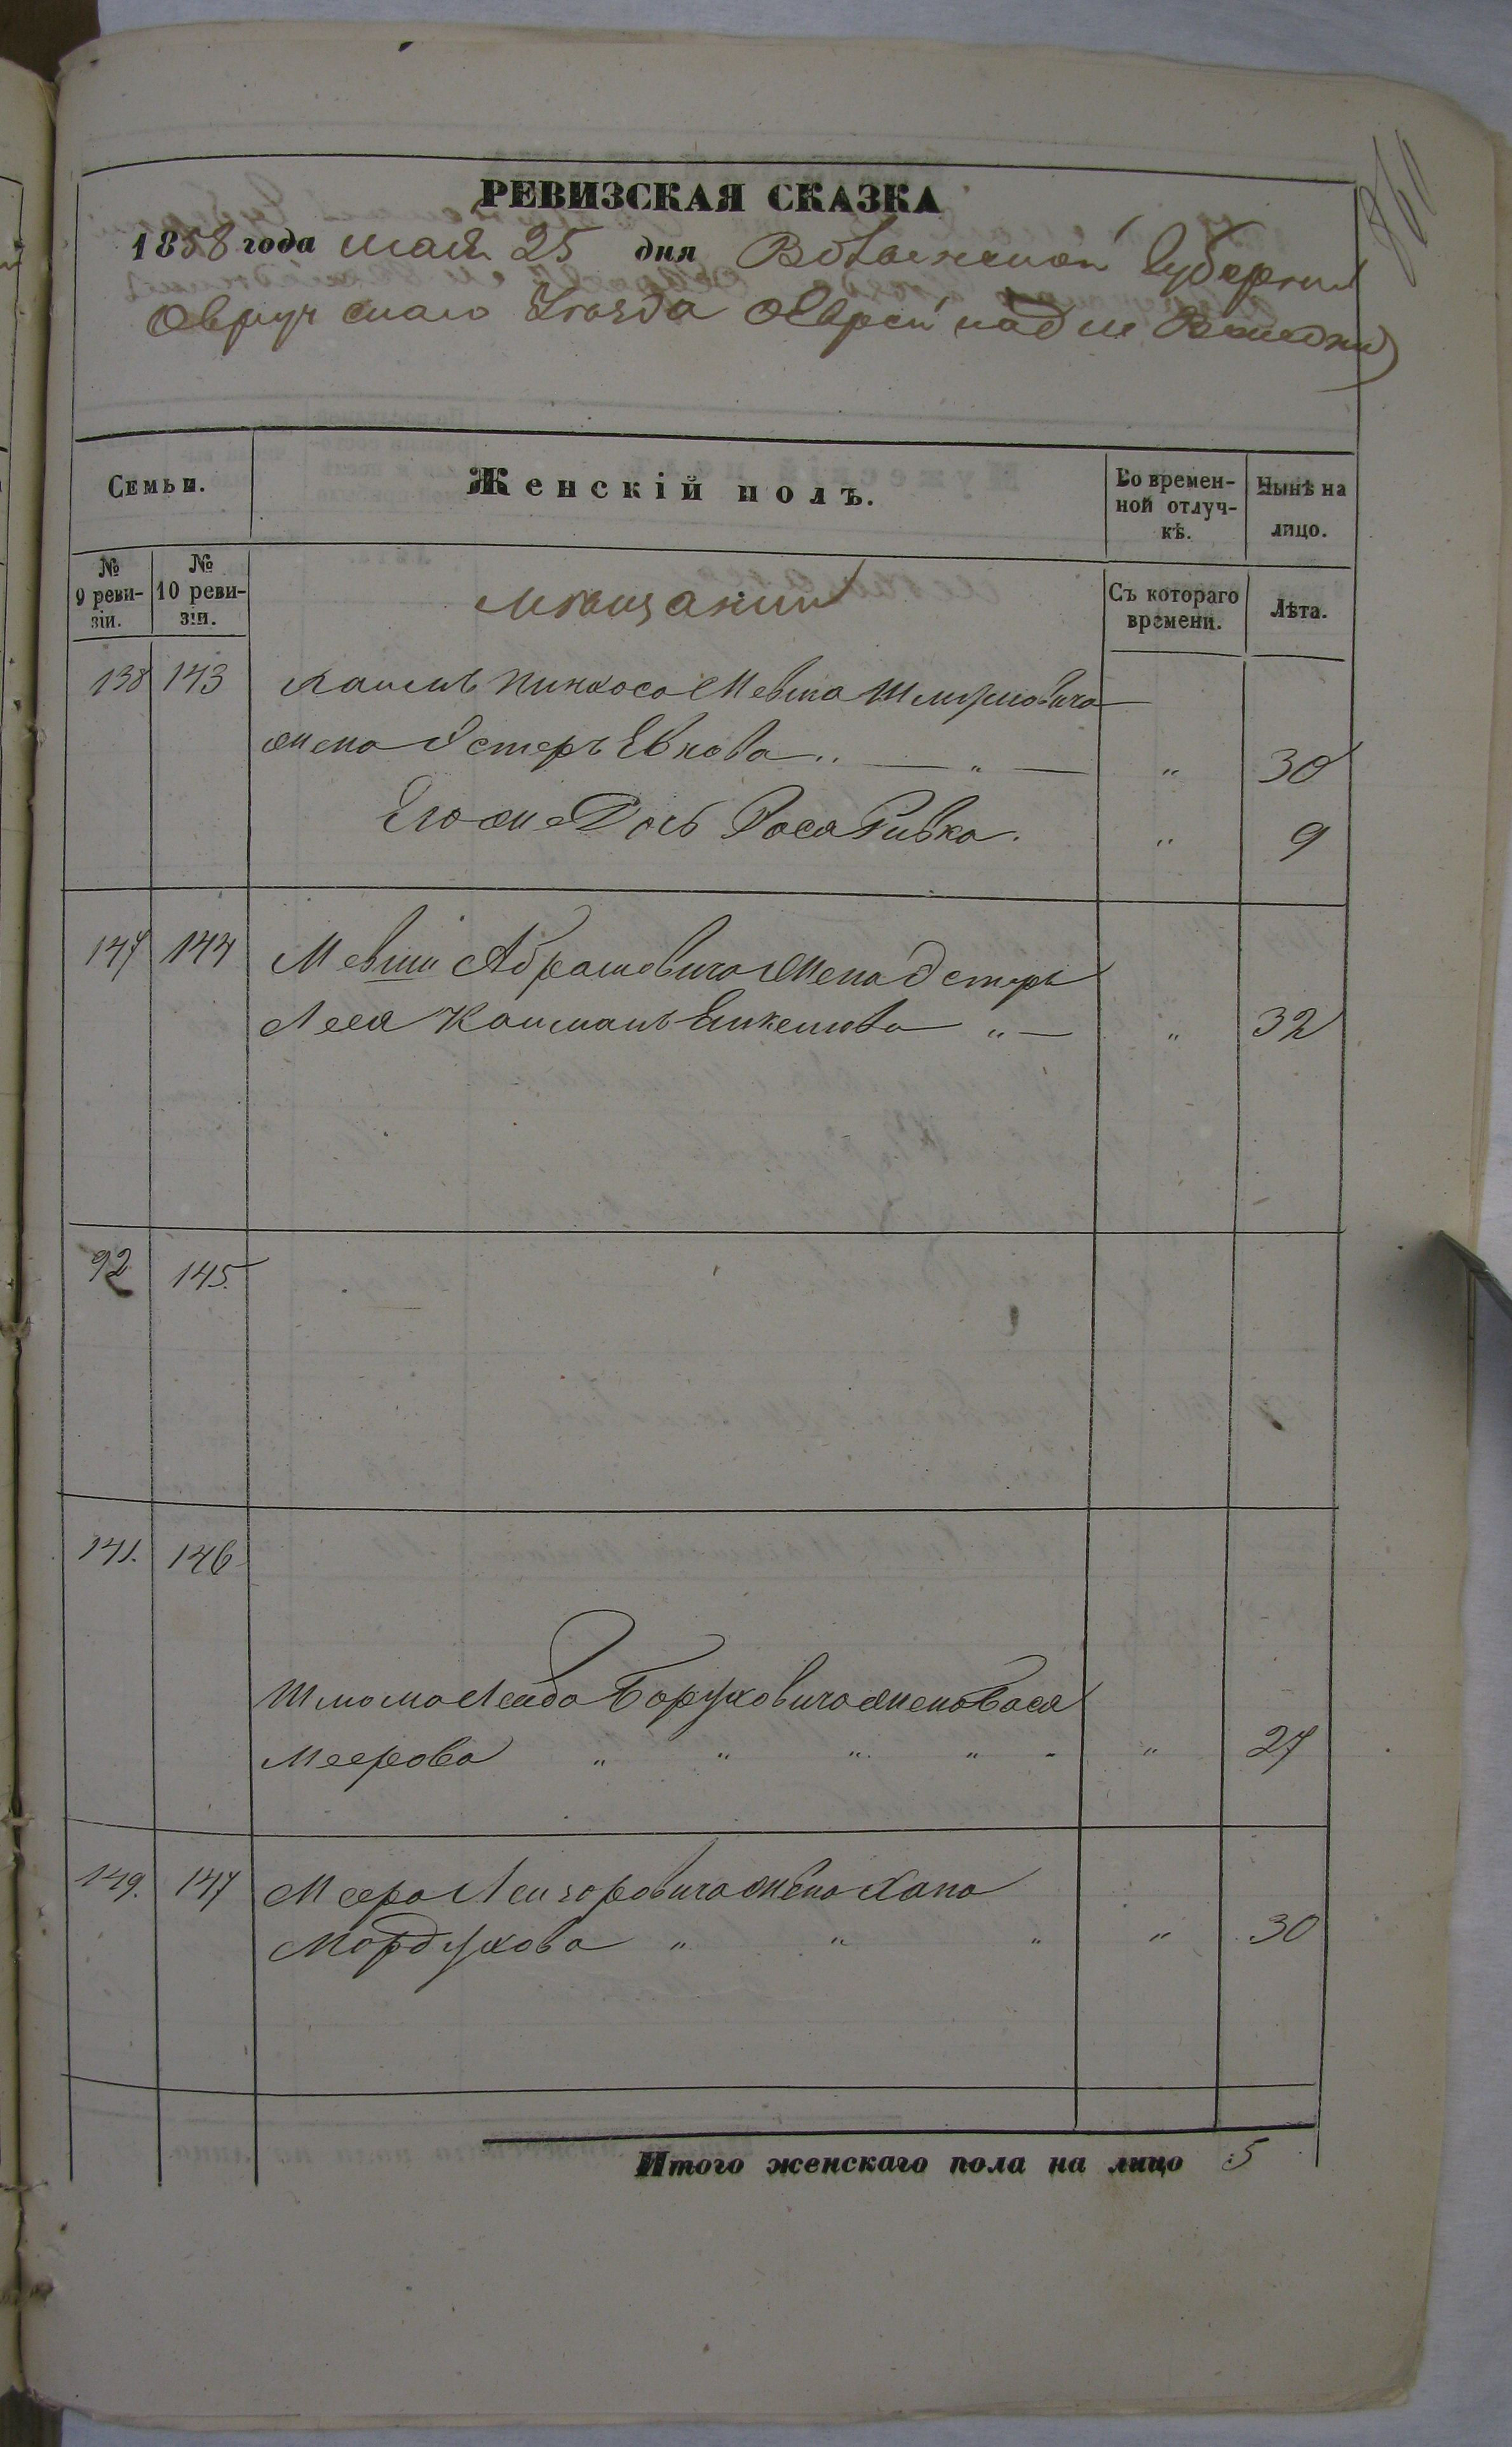 РЕВИЗСКАЯ СКАЗКА
1858 года мая 25 дня Волынской Губернии
Овручскаго Уезда Еврей
Семьи.
Женскій полъ.
Во времен-
ной отлуч-
кѣ.
Нынѣ на
лицо.
№
9 реви-
зіи.
№
10 реви-
зіи.
Мѣщании
Съ котораго
времени.
Лѣта.
138 143 Пинхоса Мевша Шмулиовича
жена Эстеръ „ „ 30
Его же Дочь Рося Ривка. „ 9
147 144 Мевши Абрамовича Жена Эстеръ
Лея „ „ 32
92 145.
141. 146
Шлиома Лейба Боруховича жена Бася
Меерова „ „ „ „ - „ 27
149. 147 Меера Лейзоровича жена Хана
Мордухова „ „ „ „ 30
Итого женскаго пола на лицо 5